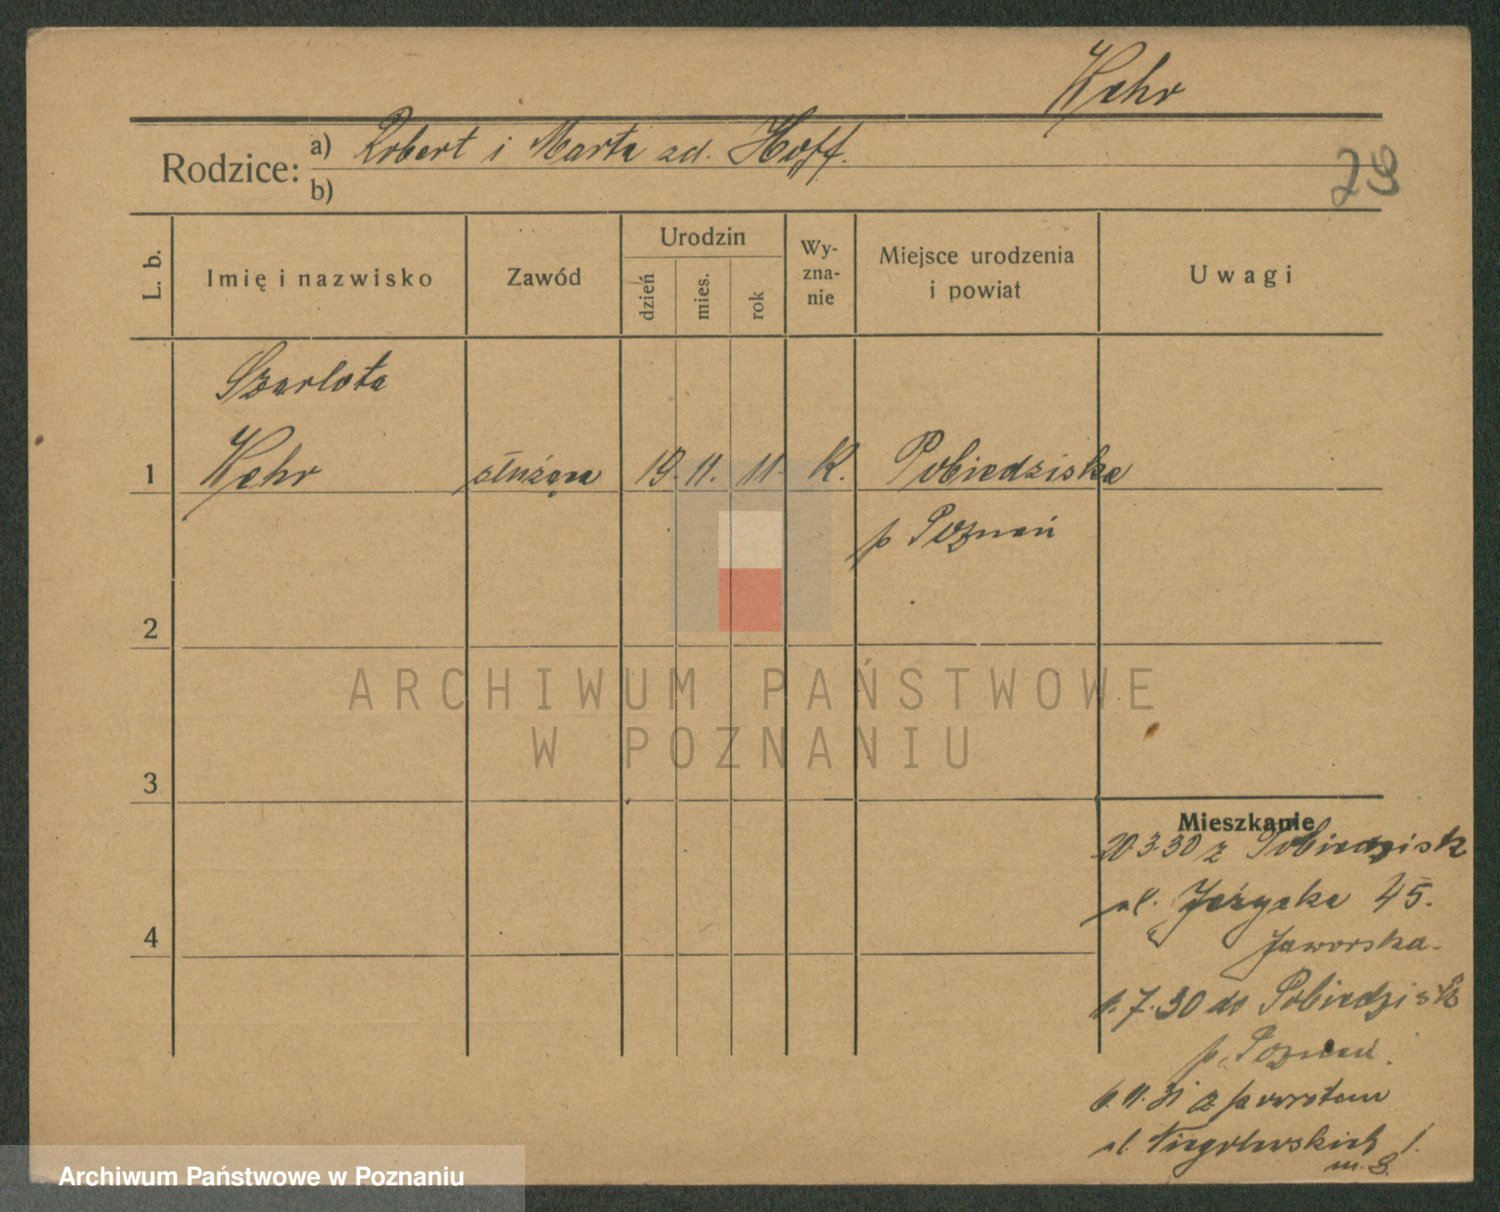 Kehr
Rodzice: a) Robert i Marta zd. Hoff.
b)
29
L. b.
Imię i nazwisko
Zawód
Urodzin
dzień
mies.
rok
Wy-
zna-
nie
Miejsce urodzenia
i powiat
Uwagi
Szarlota
1 Kehr służąca 19. 11. 11. K. Pobiedziska
p Poznań
2
3
4
ARCHIWUM PAŃSTWOWE
W POZNANIU
Mieszkanie
20.3.30 z Pobiedzisk
ul. 45.
Jaworska.
1.7.30 do Pobiedzisk
p. Poznań.
6.11.31 z powrotem
ul. Niegolewskich 1.
m. 8.
Archiwum Państwowe w Poznaniu